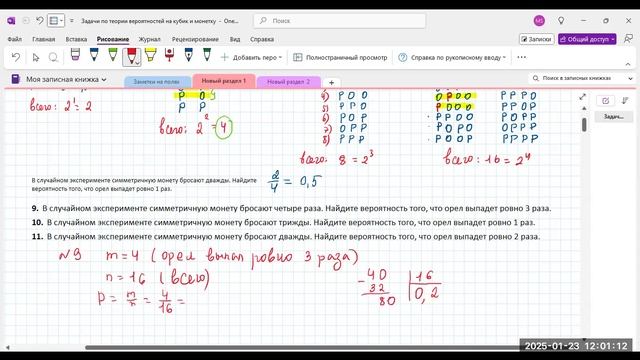 Задачи по теории вероятностей на кубик и монетку - One...
Поиск
MS
Файл Главная Вставка Рисование Журнал Рецензирование Вид Справка
Записки
Общий доступ
Добавить перо
Полноэкранный просмотр
Справка по рукописному вводу
Моя записная книжка
Заметки на полях
Новый раздел 1
Новый раздел 2
Поиск в записных книжках
Задач...
Р О
Р Р
всего: 2¹ = 2
всего: 2² = 4
4) Р О О
5) Р Р О
6) Р О Р
7) О Р Р
8) Р Р Р
всего: 8 = 2³
О Р О О
Р О О О
всего: 16 = 2⁴
В случайном эксперименте симметричную монету бросают дважды. Найдите
вероятность того, что орел выпадет ровно 1 раз.
2/4 = 0,5
9. В случайном эксперименте симметричную монету бросают четыре раза. Найдите вероятность того, что орел выпадет ровно 3 раза.
10. В случайном эксперименте симметричную монету бросают трижды. Найдите вероятность того, что орел выпадет ровно 1 раз.
11. В случайном эксперименте симметричную монету бросают дважды. Найдите вероятность того, что орел выпадет ровно 2 раза.
№9 m = 4 (орел выпал ровно 3 раза)
n = 16 (всего)
P = m/n = 4/16 =
- 40 | 16
32 | 0,2
80
2025-01-23 12:01:12